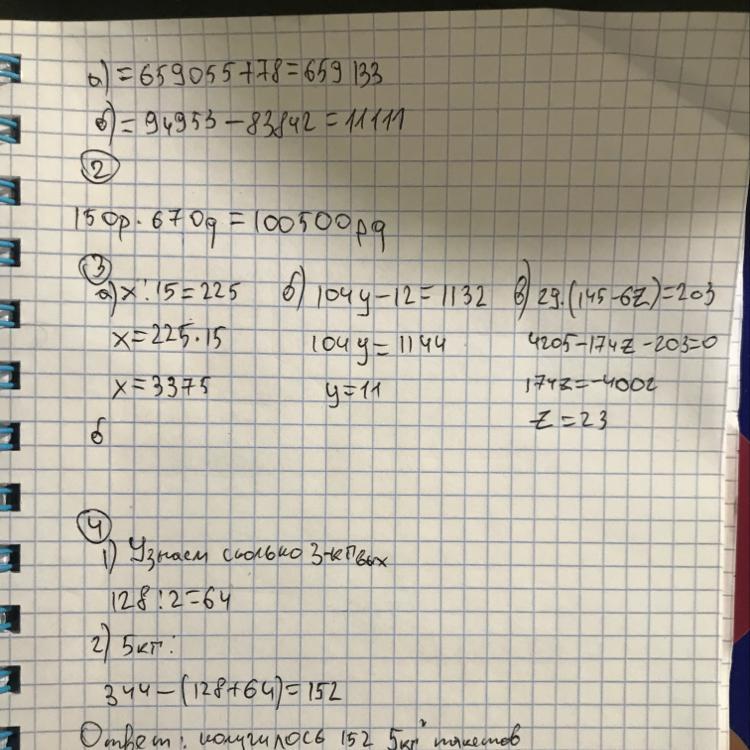 а) = 659055+78=659133
б) = 94953-83842=11111
2
150р·670д=100500рд
3
а) x:15=225 б) 104y-12=1132 в) 29·(145-6z)=203
x=225·15 104y=1144 4205-174z-203=0
x=3375 y=11 174z=-4002
б z=23
4
1) Узнаем сколько 3-кг вых
128:2=64
2) 5кг:
344-(128+64)=152
Ответ: получилось 152 5кг пакетов